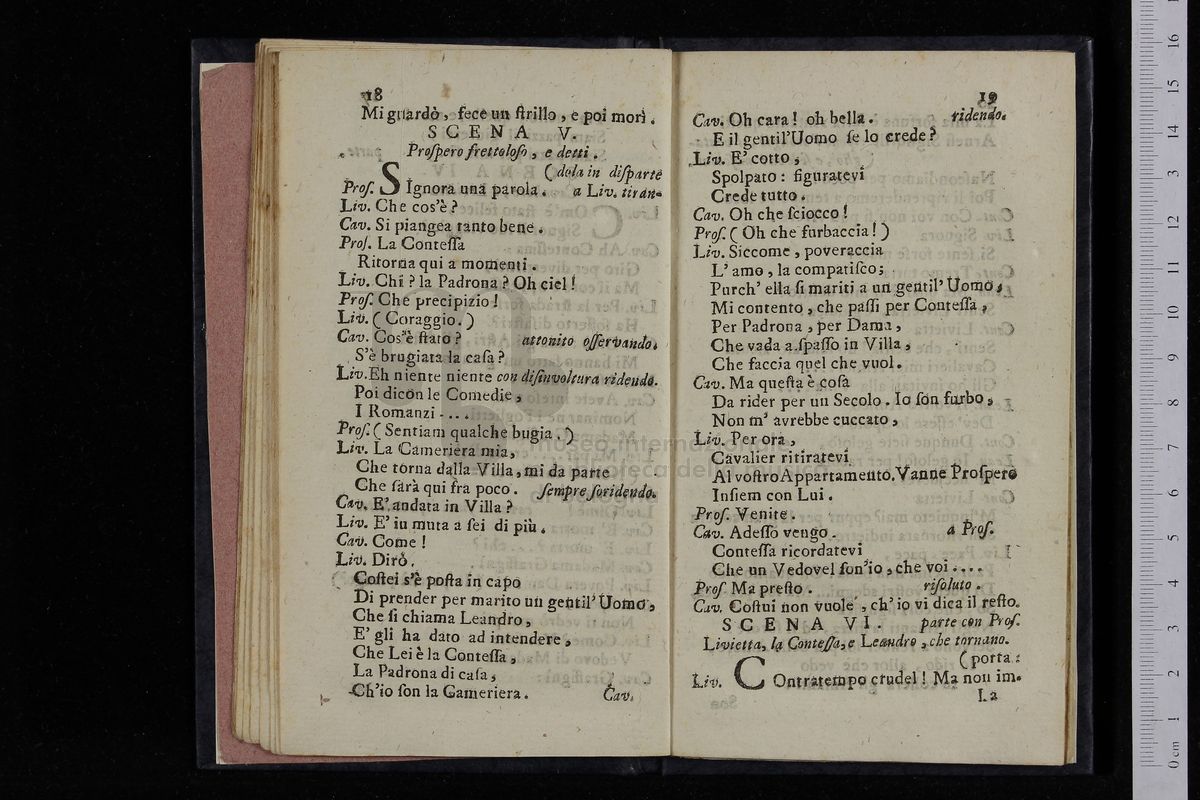 18
Mi guardò, fece un ſtrillo, e poi morì.
SCENA V.
Proſpero frettoloſo, e detti.
(dola in diſparte
Proſ. SIgnora una parola. a Liv. tiran-
Liv. Che cos'è?
Cav. Si piangea tanto bene.
Proſ. La Conteſſa
Ritorna qui a momenti.
Liv. Chi? la Padrona? Oh ciel!
Proſ. Che precipizio!
Liv. (Coraggio.)
Cav. Cos'è ſtato? attonito oſſervando.
S'è brugiata la caſa?
Liv. Eh niente niente con diſinvoltura ridendo.
Poi dicon le Comedie,
I Romanzi ....
Proſ. (Sentiam qualche bugia.)
Liv. La Cameriera mia,
Che torna dalla Villa, mi da parte
Che ſarà qui fra poco. ſempre ſoridendo.
Cav. E' andata in Villa?
Liv. E' in muta a ſei di più.
Cav. Come!
Liv. Dirò.
Coſtei s'è poſta in capo
Di prender per marito un gentil' Uomo,
Che ſi chiama Leandro,
E' gli ha dato ad intendere,
Che Lei è la Conteſſa,
La Padrona di caſa,
Ch'io ſon la Cameriera.
Cav.
19
Cav. Oh cara! oh bella. ridendo.
E il gentil'Uomo ſe lo crede?
Liv. E' cotto,
Spolpato: figuratevi
Crede tutto.
Cav. Oh che ſciocco!
Proſ. (Oh che furbaccia!)
Liv. Siccome, poveraccia
L' amo, la compatiſco;
Purch' ella ſi mariti a un gentil' Uomo,
Mi contento, che paſſi per Conteſſa,
Per Padrona, per Dama,
Che vada a ſpaſſo in Villa,
Che faccia quel che vuol.
Cav. Ma queſta è coſa
Da rider per un Secolo. Io ſon furbo,
Non m' avrebbe cuccato,
Liv. Per ora,
Cavalier ritiratevi
Al voſtro Appartamento. Vanne Proſpero
Inſiem con Lui.
Proſ. Venite.
Cav. Adeſſo vengo. a Proſ.
Conteſſa ricordatevi
Che un Vedovel ſon'io, che voi ....
Proſ Ma preſto. riſoluto.
Cav. Coſtui non vuole, ch' io vi dica il reſto.
SCENA VI. parte con Proſ.
Livietta, la Conteſſa, e Leandro, che tornano.
(porta:
Liv. COntratempo crudel! Ma non im-
La